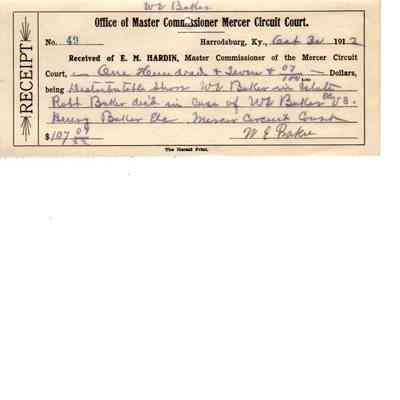 W E Baker
Office of Master Commissioner Mercer Circuit Court.
No. 49 Harrodsburg, Ky., Oct 30 1912
Received of E. M. HARDIN, Master Commissioner of the Mercer Circuit
Court, One Hundred & Seven & 07/100 Dollars,
being Distributable Share W E Baker in Estate
Robt Baker dec'd in case of W E Baker &c VS.
Henry Baker &c. Mercer Circuit Court
$107 07 W. E. Baker
RECEIPT
The Herald Print.